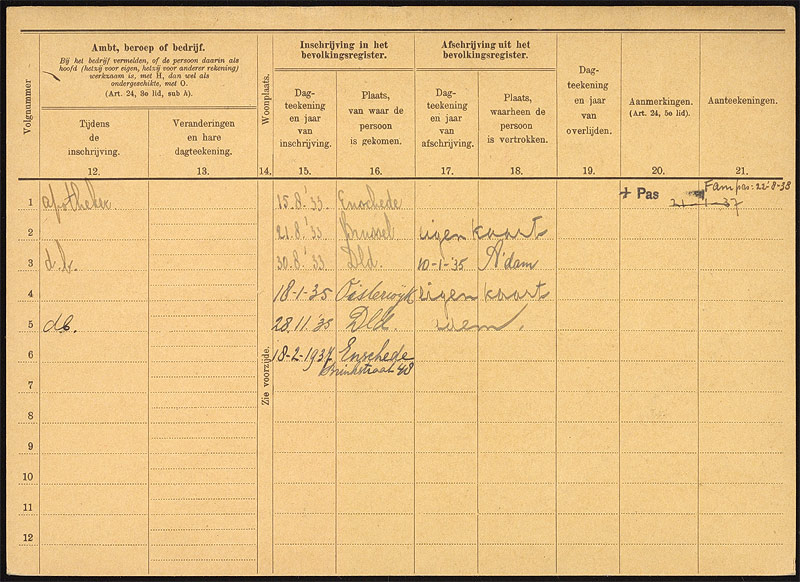 Volgnummer
Ambt, beroep of bedrijf.
Bij het bedrijf vermelden, of de persoon daarin als
hoofd (hetzij voor eigen, hetzij voor anderer rekening)
werkzaam is, met H, dan wel als
ondergeschikte, met O.
(Art. 24, 3o lid, sub h).
Tijdens
de
inschrijving.
12.
Veranderingen
en hare
dagteekening.
13.
Woonplaats.
14.
Inschrijving in het
bevolkingsregister.
Dag-
teekening
en jaar
van
inschrijving.
15.
Plaats,
van waar de
persoon
is gekomen.
16.
Afschrijving uit het
bevolkingsregister.
Dag-
teekening
en jaar
van
afschrijving.
17.
Plaats,
waarheen de
persoon
is vertrokken.
18.
Dag-
teekening
en jaar
van
overlijden.
19.
Aanmerkingen.
(Art. 24, 5o lid).
20.
Aanteekeningen.
21.
1 apotheker. 15.8.'33. Enschede + Pas 21-1-37 Fam pas: 22-8-38
2 21.8.'33 Brussel eigen kaart
3 30.8.'33 Dld. 10-1-'35 A'dam
4 18-1-35 Oisterwijk eigen kaart
5 28.11.'35 Dld. idem.
6 18-2-1937 Enschede
Brinkstraat 48
Zie voorzijde.
7
8
9
10
11
12